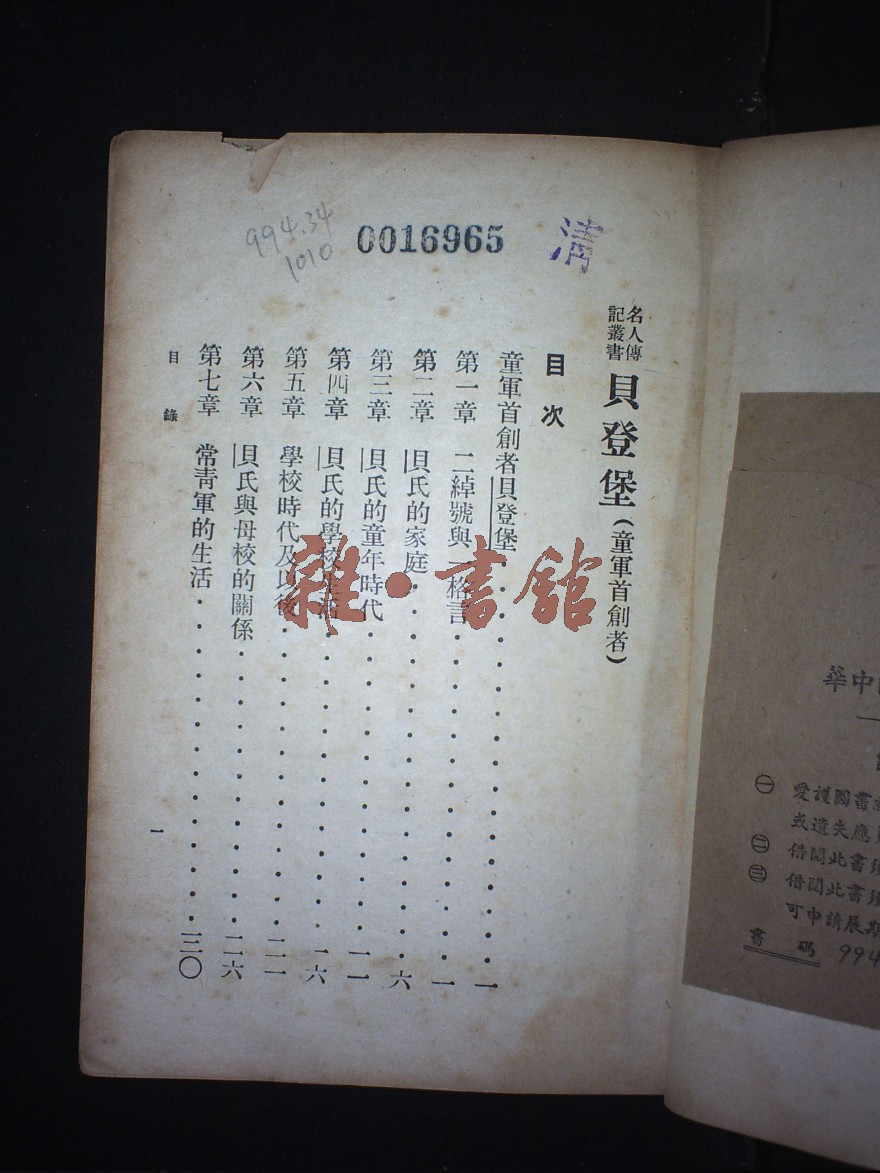 994.34
1010
0016965
清
名人傳
記叢書
貝登堡(童軍首創者)
目次
童軍首創者貝登堡..................一
第一章 二綽號與一格言..................一
第二章 貝氏的家庭..................六
第三章 貝氏的童年時代..................一一
第四章 貝氏的學校生活..................一六
第五章 學校時代及以後..................二一
第六章 貝氏與母校的關係..................二六
第七章 常青軍的生活..................三〇
目錄
一
雜·書館
中華
㊀ 愛護圖書
或遺失應
㊁ 借閱此書
㊂ 借閱此書
可申請展期
書碼 994